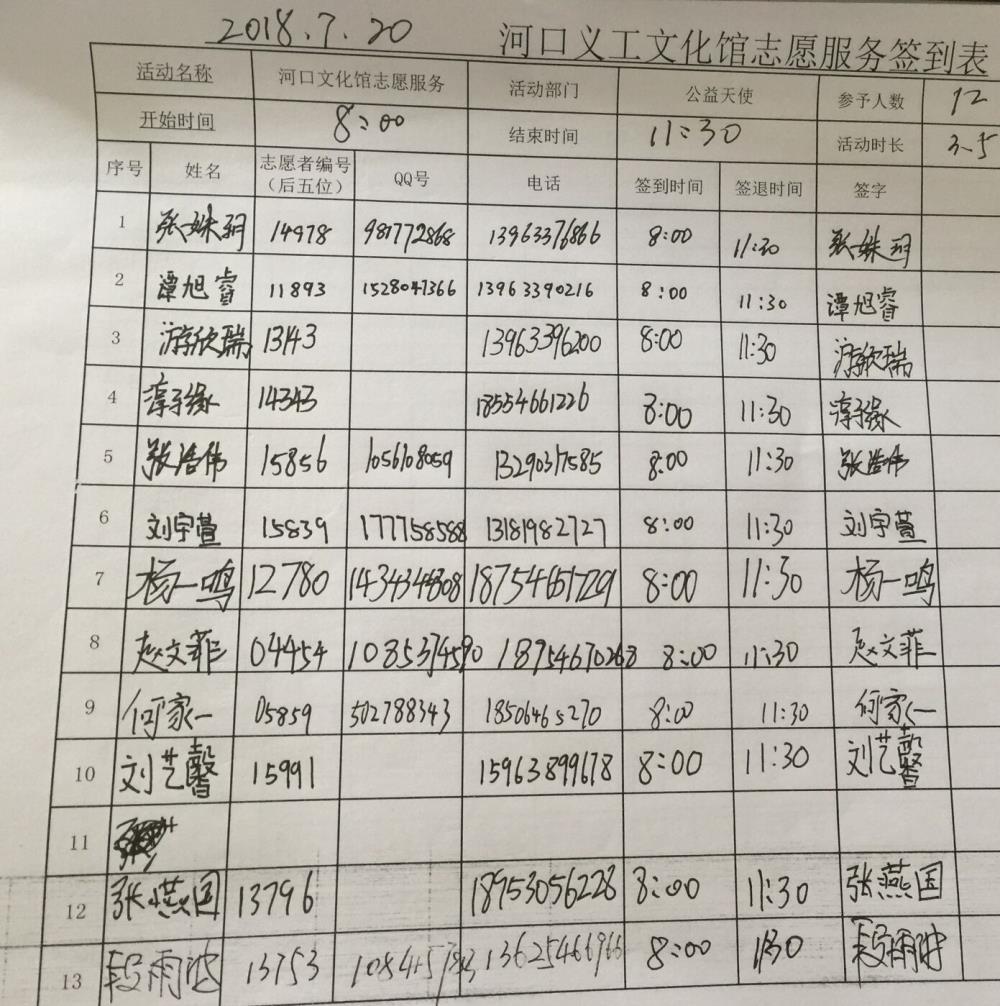 2018.7.20 河口义工文化馆志愿服务签到表
活动名称 河口文化馆志愿服务 活动部门 公益天使 参予人数 12
开始时间 8:00 结束时间 11:30 活动时长 3.5
序号 姓名 志愿者编号 QQ号 电话 签到时间 签退时间 签字
（后五位）
1 张姝玥 14978 987772868 13963376866 8:00 11:30 张姝玥
2 谭旭睿 11893 1528047366 13963390216 8:00 11:30 谭旭睿
3 游欣瑞 13143 13963396200 8:00 11:30 游欣瑞
4 淳子缘 14343 18554661226 8:00 11:30 淳子缘
5 张浩伟 15856 1056108059 13290317585 8:00 11:30 张浩伟
6 刘宇萱 15839 177758588 13181982727 8:00 11:30 刘宇萱
7 杨一鸣 12780 1434344808 18754651729 8:00 11:30 杨一鸣
8 赵文菲 04454 1085374590 18954670268 8:00 11:30 赵文菲
9 何家一 05859 502788343 18506465270 8:00 11:30 何家一
10 刘艺馨 15991 15963899678 8:00 11:30 刘艺馨
11
12 张燕国 13796 18953056228 8:00 11:30 张燕国
13 段雨波 13753 13625466966 8:00 1130 段雨波